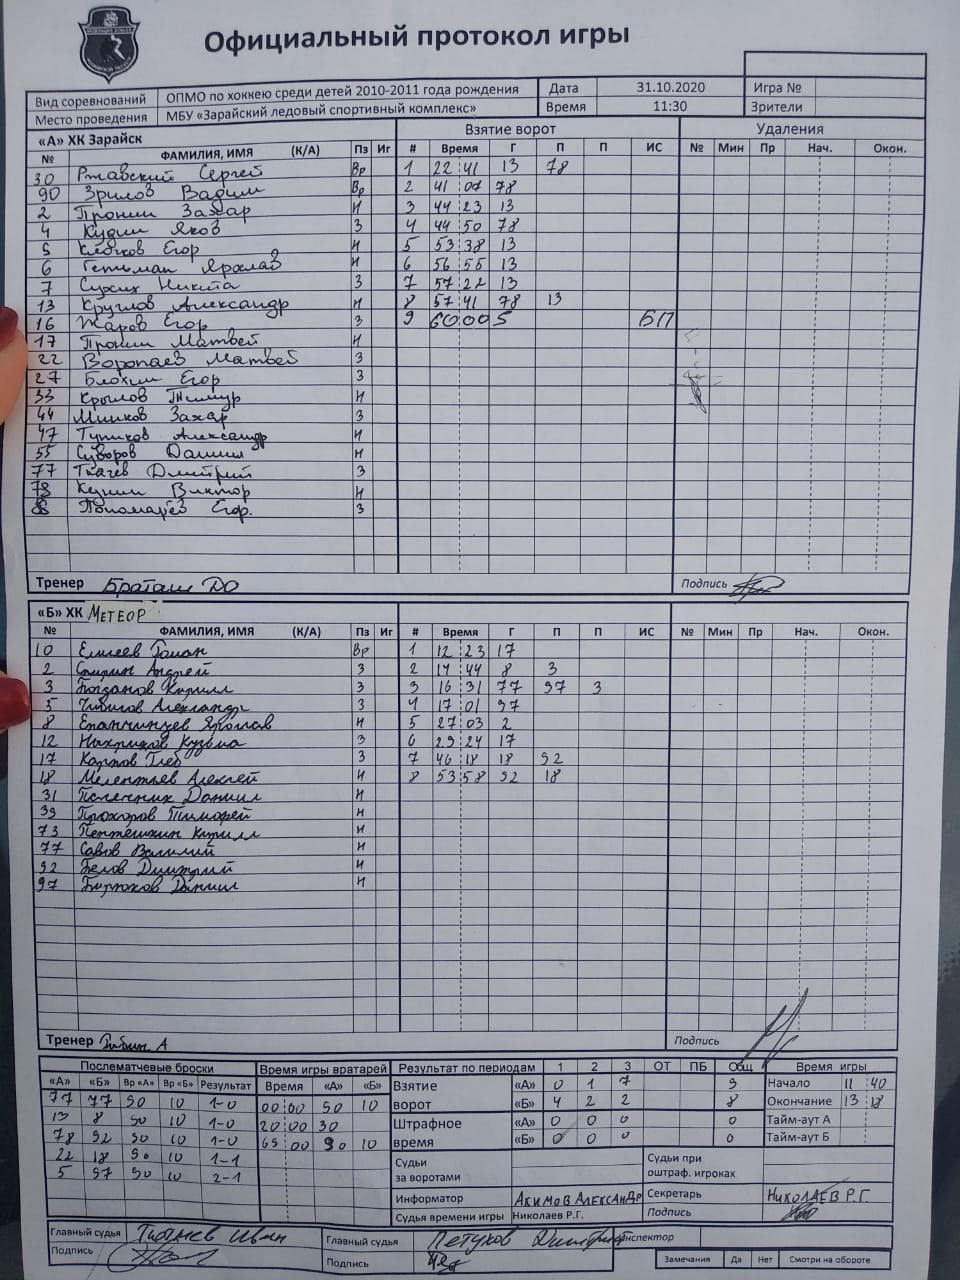 Официальный протокол игры
Вид соревнований ОПМО по хоккею среди детей 2010-2011 года рождения Дата 31.10.2020 Игра №
Место проведения МБУ «Зарайский ледовый спортивный комплекс» Время 11:30 Зрители
«А» ХК Зарайск Взятие ворот Удаления
№ ФАМИЛИЯ, ИМЯ (К/А) Пз Иг # Время Г П П ИС № Мин Пр Нач. Окон.
30 Ржавский Сергей Вр 1 22 41 13 78
90 Зрилов Вадим Вр 2 41 07 78
2 Пронин Захар Н 3 44 23 13
4 Кудин Яков З 4 44 50 78
5 Клочков Егор Н 5 53 38 13
6 Гетьман Ярослав Н 6 56 55 13
7 Сухих Никита З 7 57 22 13
13 Круглов Александр Н 8 57 41 78 13
16 Жаров Егор З 9 60 00 5 БП
17 Пронин Матвей Н
22 Воропаев Матвей З
27 Блохин Егор З
33 Крылов Тимур Н
44 Минков Захар З
47 Тупиков Александр Н
55 Суворов Даниил Н
77 Ткачев Дмитрий З
78 Кунин Виктор Н
Пономарёв Егор. З
Тренер Браташ ДО Подпись
«Б» ХК МЕТЕОР
№ ФАМИЛИЯ, ИМЯ (К/А) Пз Иг # Время Г П П ИС № Мин Пр Нач. Окон.
10 Елисеев Роман Вр 1 12 23 17
2 Спирин Андрей З 2 14 44 8 3
3 Богданов Кирилл З 3 16 31 77 97 3
5 Александр З 4 17 01 97
8 Епанчинцев Ярослав Н 5 27 03 2
12 Кузьма З 6 29 24 17
17 Карпов Глеб З 7 46 18 18 92
18 Мелентьев Алексей Н 8 53 58 92 18
31 Даниил Н
39 Прохоров Тимофей Н
73 Пентешкин Кирилл Н
77 Савов Василий Н
92 Белов Дмитрий Н
97 Бирюков Даниил Н
Тренер А Подпись
Послематчевые броски Время игры вратарей Результат по периодам 1 2 3 ОТ ПБ Общ Время игры
«А» «Б» Вр «А» Вр «Б» Результат Время «А» «Б» Взятие ворот «А» 0 1 7 9 Начало 11 40
77 77 90 10 1-0 00 00 90 10 «Б» 4 2 2 8 Окончание 13 18
13 8 90 10 1-0 20 00 30 Штрафное время «А» 0 0 0 0 Тайм-аут А
78 92 90 10 1-0 65 00 90 10 «Б» 0 0 0 0 Тайм-аут Б
22 18 90 10 1-1 Судьи за воротами Судьи при оштраф. игроках
5 97 90 10 2-1
Информатор АКИМОВ АЛЕКСАНДР Секретарь НИКОЛАЕВ Р.Г.
Судья времени игры Николаев Р.Г. Подпись
Главный судья Иван Главный судья Петухов Дмитрий Инспектор
Подпись Подпись Замечания Да Нет Смотри на обороте